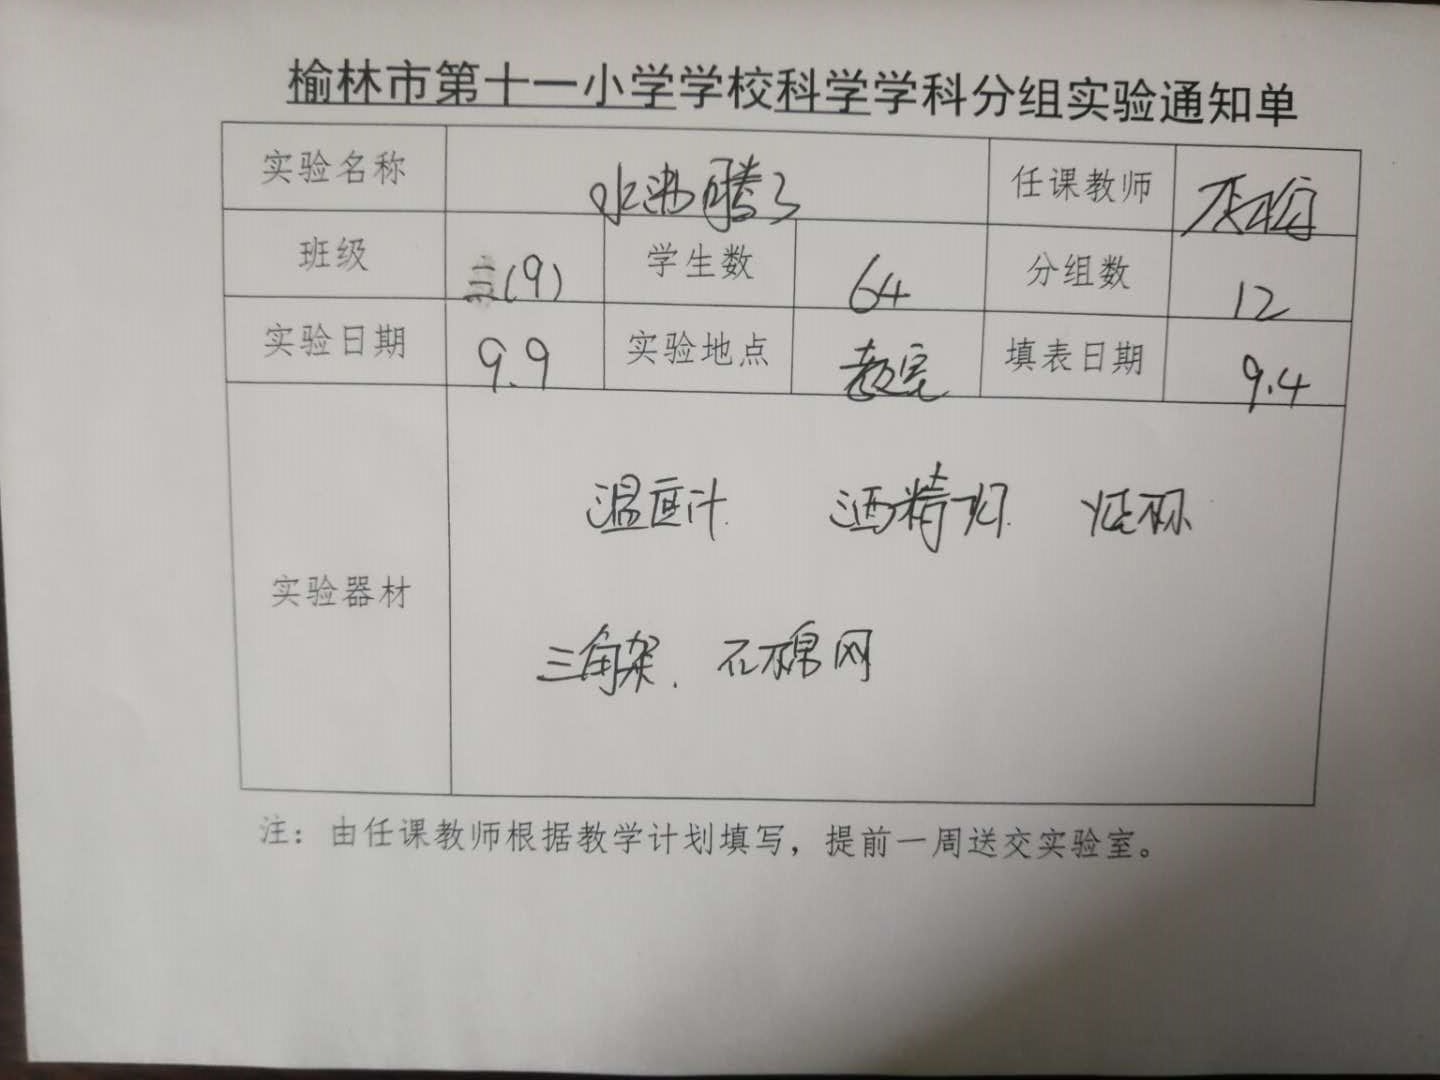 榆林市第十一小学学校科学学科分组实验通知单
实验名称 水沸腾了 任课教师
班级 三(9) 学生数 64 分组数 12
实验日期 9.9 实验地点 教室 填表日期 9.4
实验器材
温度计 酒精灯 烧杯
三角架. 石棉网
注：由任课教师根据教学计划填写，提前一周送交实验室。